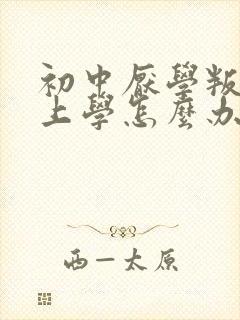 初中厭學叛
上學怎麼办
西一太原